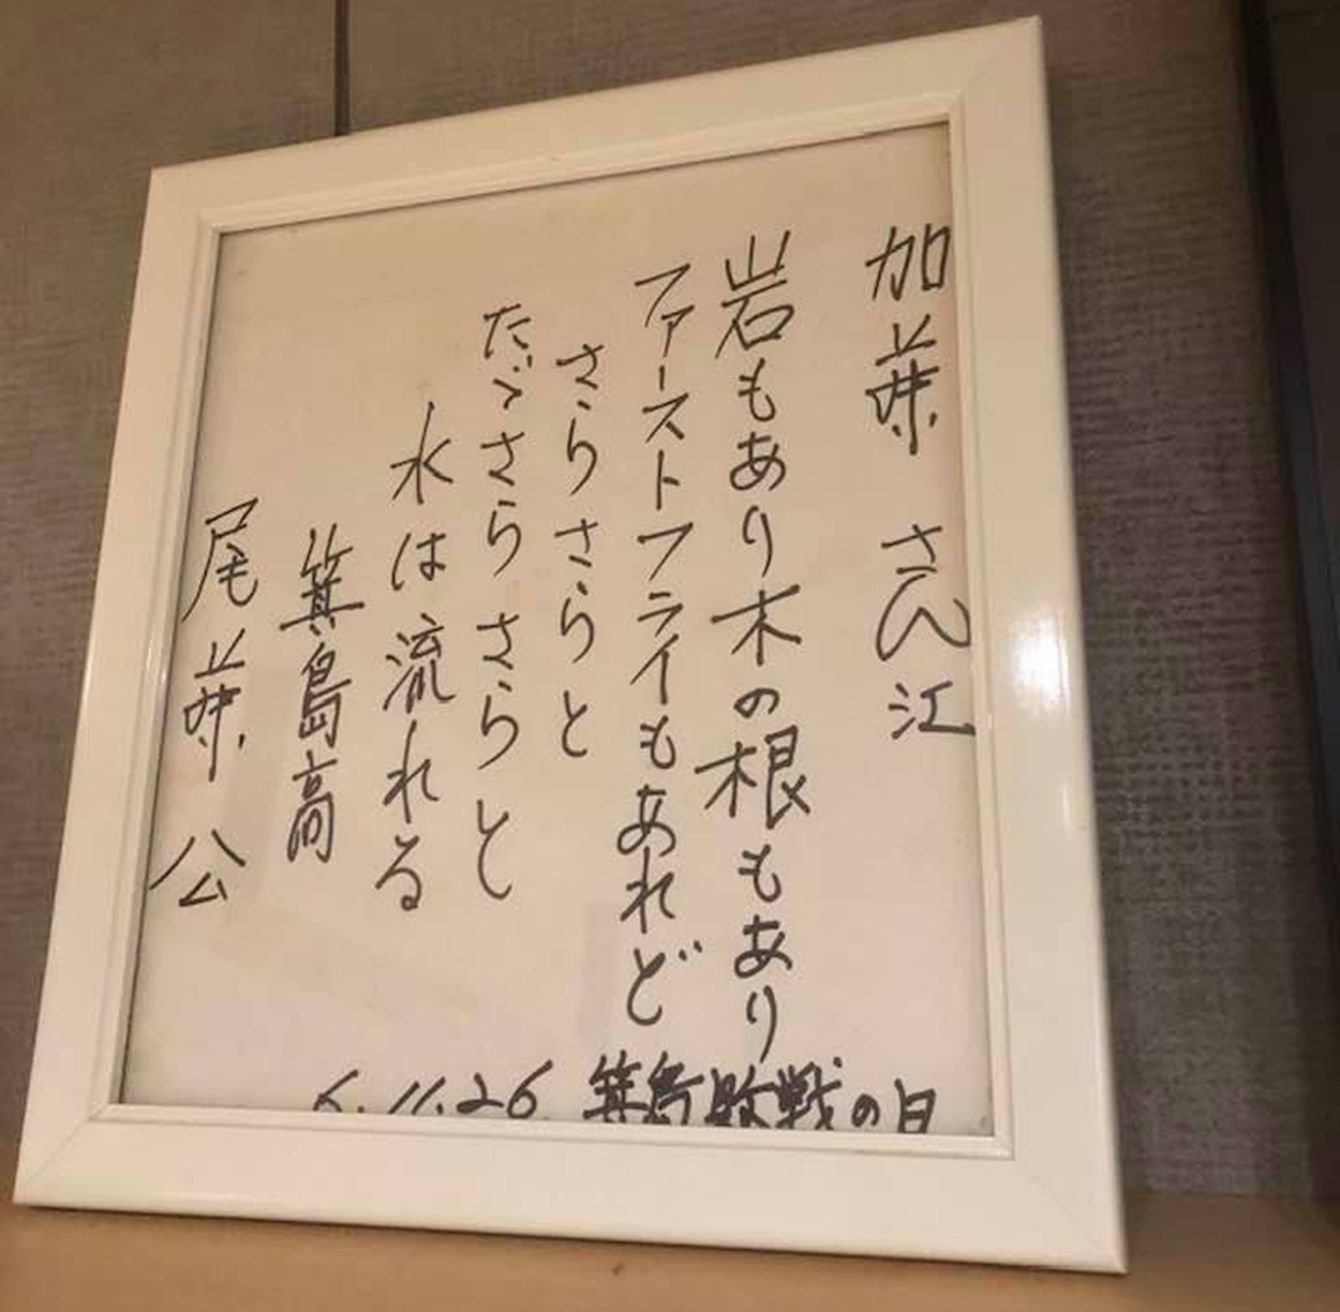 加藤 さん江
岩もあり木の根もあり
ファーストフライもあれど
さらさらと
たゞさらさらと
水は流れる
箕島高
尾藤 公
6.11.26 箕島敗戦の日